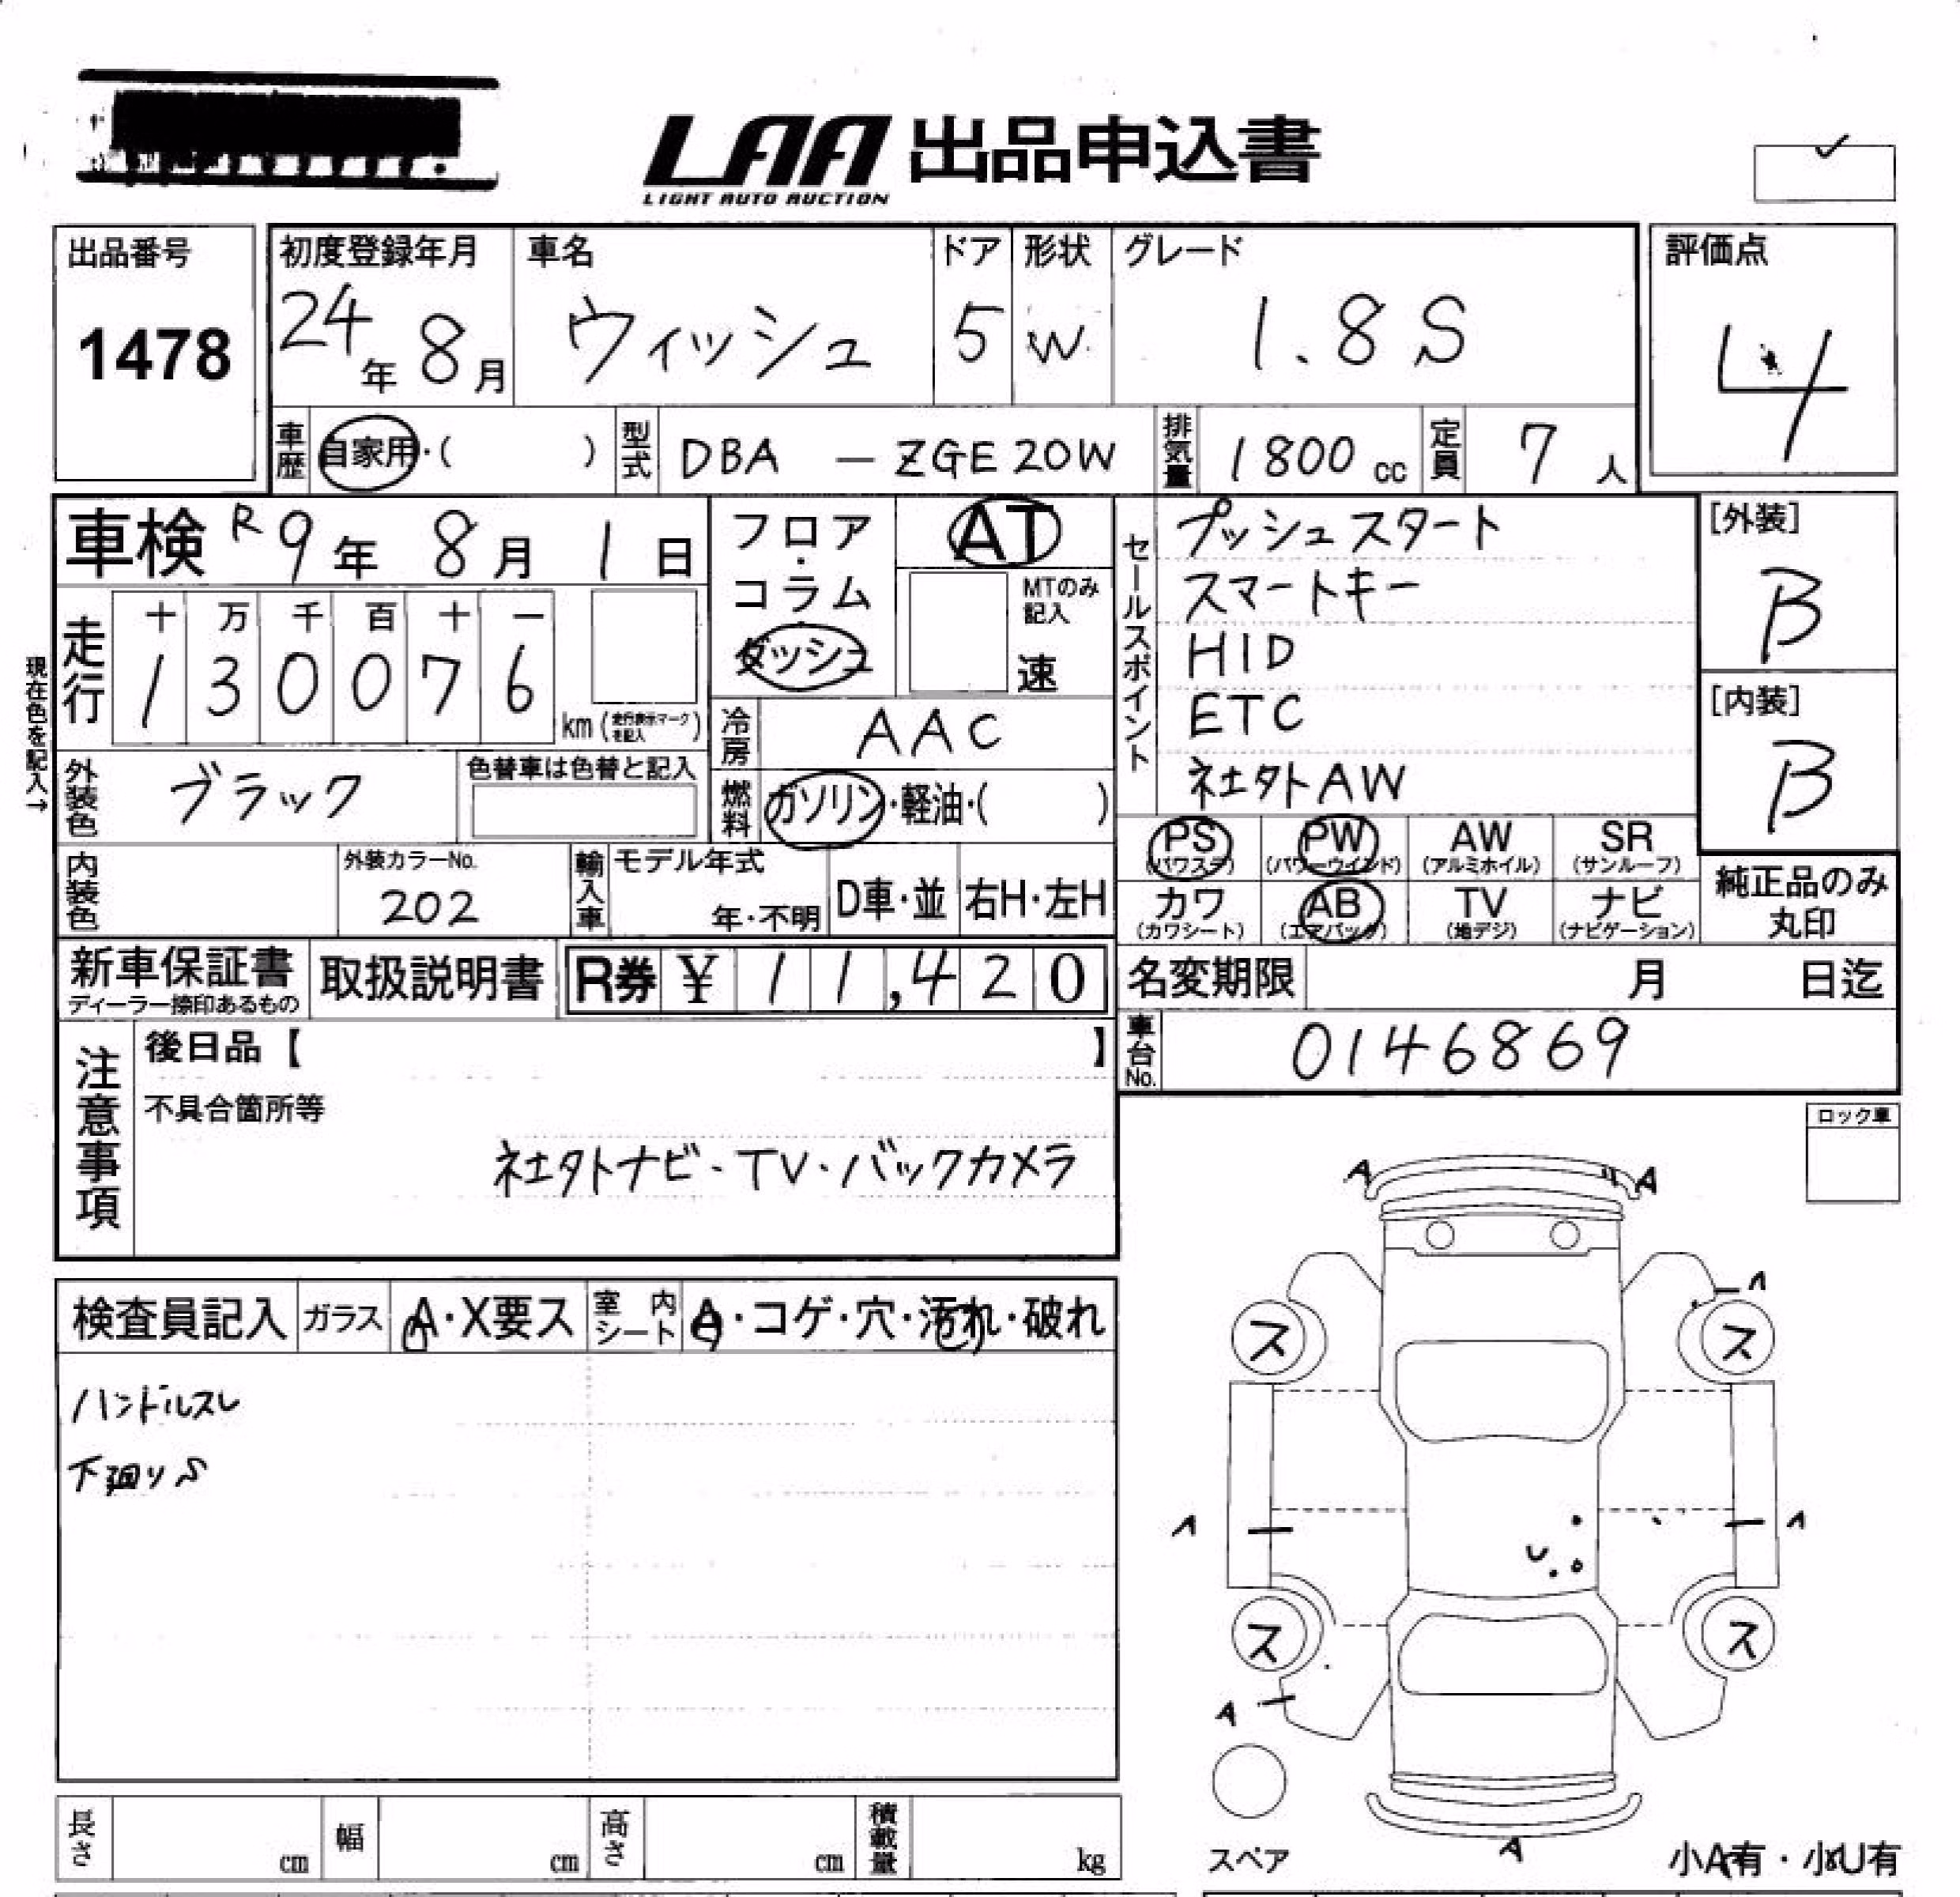 LAA 出品申込書
LIGHT AUTO AUCTION
出品番号
1478
初度登録年月
24年 8月
車名
ウィッシュ
ドア
5
形状
W
グレード
1.8 S
評価点
4
車歴 自家用・( )
型式 DBA - ZGE20W
排気量 1800 cc
定員 7 人
車検 R9年 8月 1日
フロア・コラム・ダッシュ
AT
MTのみ記入
速
セールスポイント
プッシュスタート
スマートキー
HID
ETC
社外AW
[外装]
B
[内装]
B
現在色を記入→
走行 十 万 千 百 十 一
1 3 0 0 7 6
km (走行表示マークを記入)
冷房 AAC
燃料 ガソリン・軽油・( )
外装色 ブラック
色替車は色替と記入
PS (パワステ)
PW (パワーウインド)
AW (アルミホイル)
SR (サンルーフ)
カワ (カワシート)
AB (エアバック)
TV (地デジ)
ナビ (ナビゲーション)
純正品のみ丸印
内装色
外装カラーNo.
202
輸入車
モデル年式
年・不明
D車・並
右H・左H
新車保証書
ディーラー捺印あるもの
取扱説明書
R券 ¥ 11,420
名変期限 月 日迄
車台No. 0146869
注意事項
後日品【 】
不具合箇所等
社外ナビ・TV・バックカメラ
ロック車
検査員記入
ガラス A・X要ス
室内シート A・コゲ・穴・汚れ・破れ
ハンドルスレ
下廻りS
A A
A
ス ス
A A
U
ス ス
A
A
スペア
小A有・小U有
長さ cm
幅 cm
高さ cm
積載量 kg